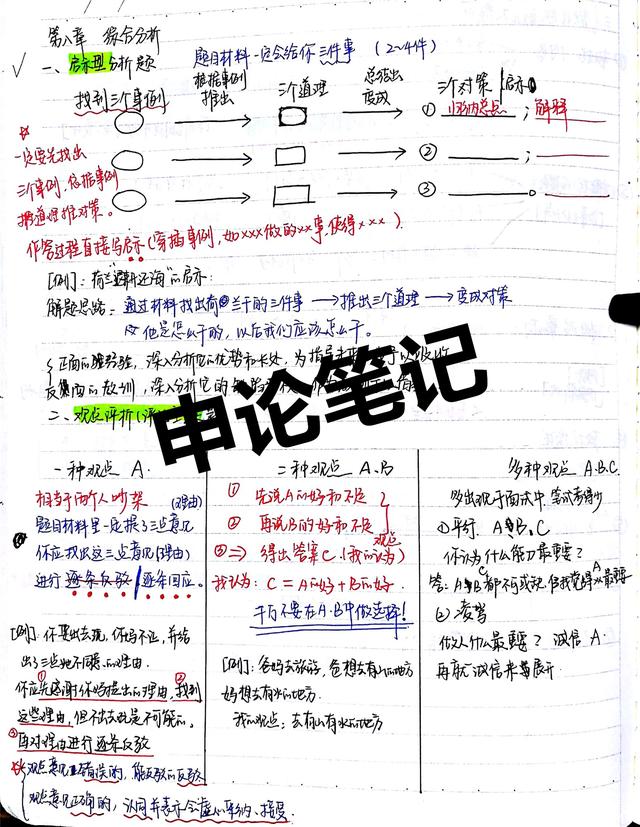 第八章 综合分析
一、启示型分析题 题目材料一定会给你三件事 (2~4件)
找到三个事例 根据事例推出 三个道理 总结出变成 三个对策/启示
① ；解释
一定要先找出
三个事例,依据事例
② ；
③ 。
作答过程直接写启示(穿插事例,如xxx做的xx事,使得xxx).
[例]: 荷兰 还海"的启示:
解题思路: 通过材料找出荷兰干的三件事 → 推出三个道理 → 变成对策
他是怎么干的,以后我们应该怎么干。
正面的 经验,深入分析它的优势和长处,为指导
反面的教训,深入分析它的
申论笔记
二、观点评析
一种观点 A.
相当于两个人吵架 (理由)
题目材料里一定提了三点意见
你应找出这三点意见(理由)
进行逐条反驳/逐条回应。
[例]: 你要出去玩,你妈不让,并给
出了三点她不同意的理由.
你应①先感谢你妈提出的理由,②找到
这些理由,但不出去玩是不可能的。
③再对理由进行逐条反驳
观点意见错误的,能反驳的反驳
观点意见正确的,认同并表示会虚心采纳、接受
二种观点 A、B
① 先说A的好和不足
② 再说B的好和不足
③ ⇒ 得出答案C.(我认为) 观点
我认为: C = A的好+B的好.
千万不要在A.B中做选择!
[例]: 爸妈去旅游,爸想去有山的地方
妈想去有水的地方.
我的观点: 去有山有水的地方
多种观点 A.B.C.
多出现于面试中,笔试考得少
①平行. A、B、C
你认为什么能力最重要?
答: A、B、C都不可或缺,但我觉得A最重要
②
做人什么最重要? 诚信 A.
再就"诚信"来 展开